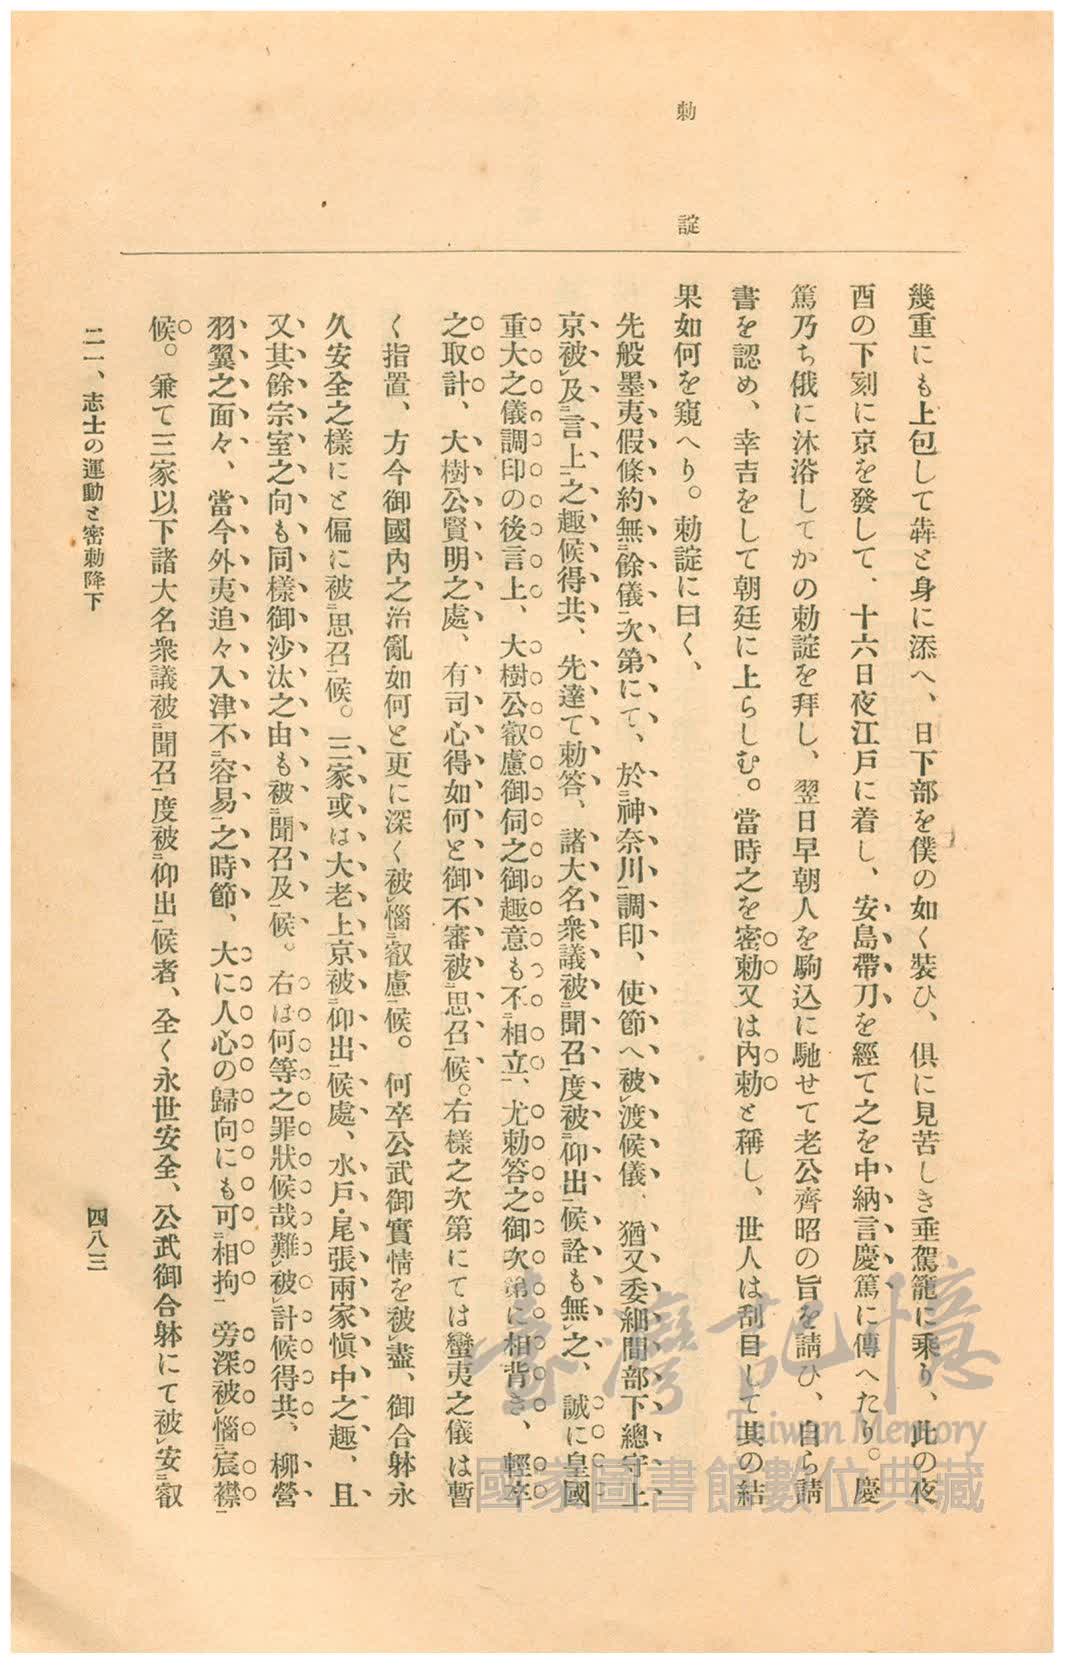 勅諚
幾重にも上包して犇と身に添へ、日下部を僕の如く裝ひ、俱に見苦しき垂駕籠に乘り、此の夜
酉の下刻に京を發して、十六日夜江戸に着し、安島帶刀を經て之を中納言慶篤に傳へたり。慶
篤乃ち俄に沐浴してかの勅諚を拜し、翌日早朝人を駒込に馳せて老公齊昭の旨を請ひ、自ら請
書を認め、幸吉をして朝廷に上らしむ。當時之を密勅又は内勅と稱し、世人は刮目して其の結
果如何を窺へり。勅諚に曰く、
先般墨夷假條約無㆓餘儀㆒次第にて、於㆓神奈川㆒調印、使節へ被㆑渡候儀、猶又委細間部下總守上
京被㆑及㆓言上㆒之趣候得共、先達て勅答、諸大名衆議被㆓聞召㆒度被㆓仰出㆒候詮も無㆑之、誠に皇國
重大之儀調印の後言上、大樹公叡慮御伺之御趣意も不㆓相立㆒、尤勅答之御次第に相背き、輕卒
之取計、大樹公賢明之處、有司心得如何と御不審被㆓思召㆒候。右樣之次第にては蠻夷之儀は暫
く指置、方今御國内之治亂如何と更に深く被㆑惱㆓叡慮㆒候。何卒公武御實情を被㆑盡、御合躰永
久安全之樣にと偏に被㆓思召㆒候。三家或は大老上京被㆓仰出㆒候處、水戸・尾張兩家愼中之趣、且
又其餘宗室之向も同樣御沙汰之由も被㆓聞召及㆒候。右は何等之罪狀候哉難㆑被㆑計候得共、柳營
羽翼之面々、當今外夷追々入津不㆓容易㆒之時節、大に人心の歸向にも可㆓相拘㆒旁深被㆑惱㆓宸襟㆒
候。兼て三家以下諸大名衆議被㆓聞召㆒度被㆓仰出㆒候者、全く永世安全、公武御合躰にて被㆑安㆓叡
二一、志士の運動と密勅降下
四八三
臺灣記憶
Taiwan Memory
國家圖書館數位典藏